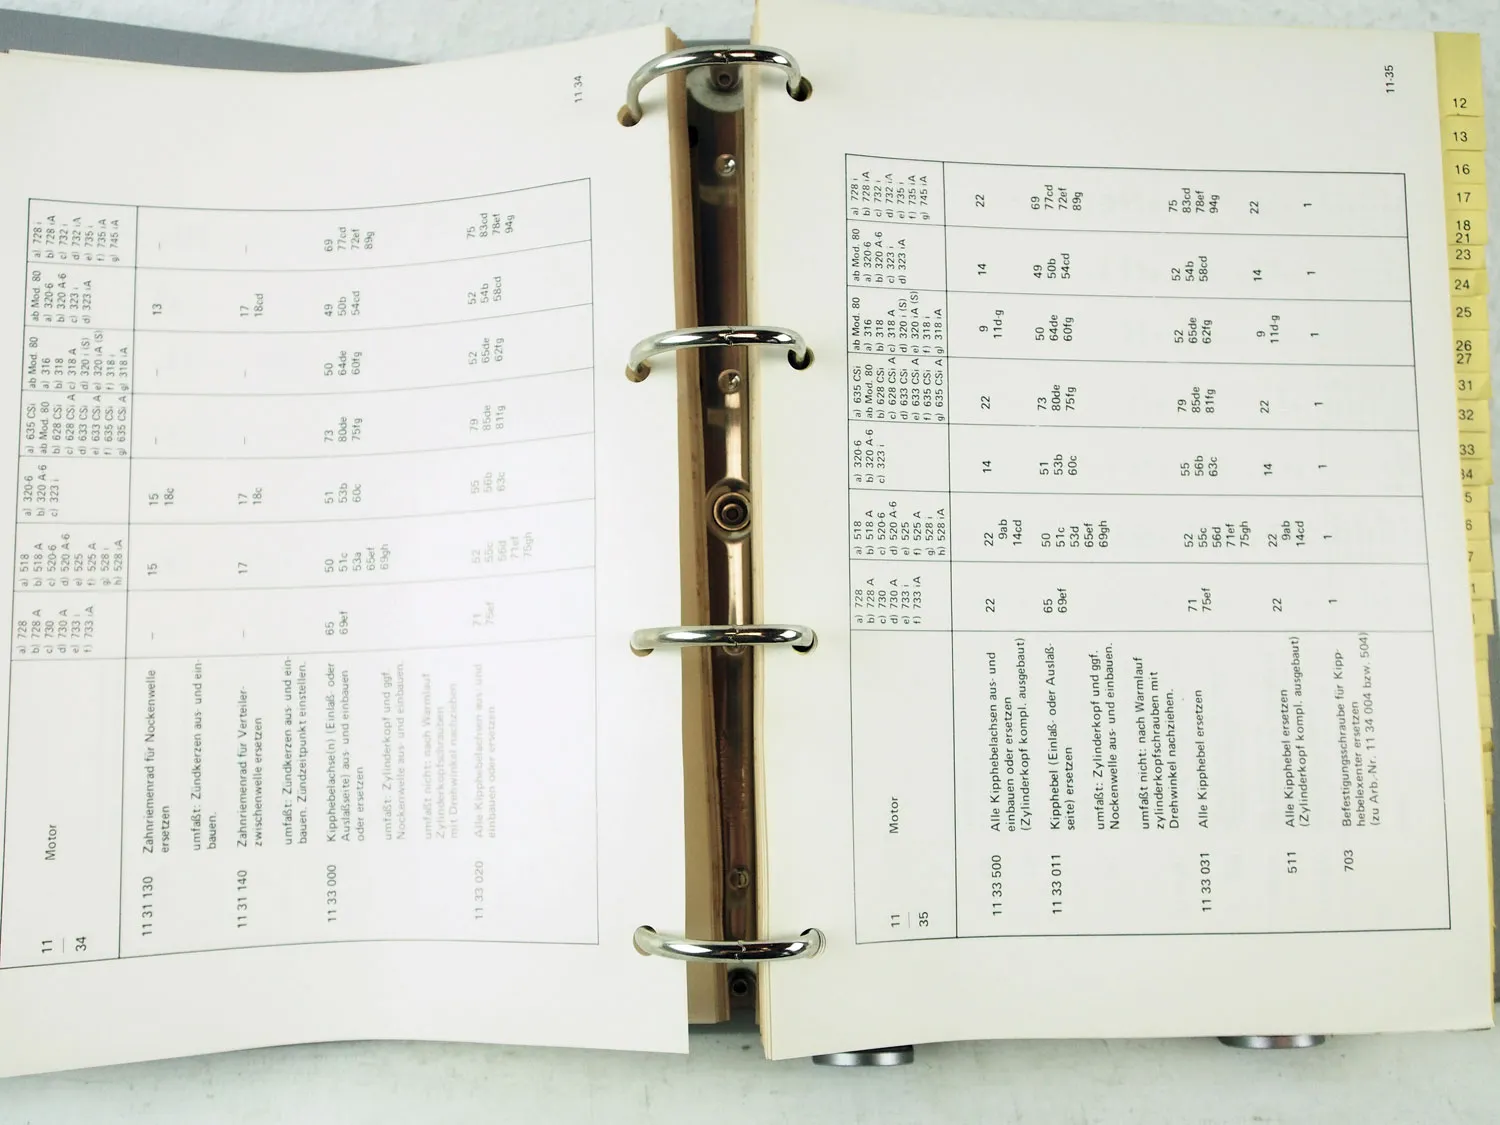 11
34
Motor
a) 728
b) 728 A
c) 730
d) 730 A
e) 733 i
f) 733 iA
a) 518
b) 518 A
c) 520-6
d) 520 A-6
e) 525
f) 525 A
g) 528 i
h) 528 iA
a) 320-6
b) 320 A-6
c) 323 i
a) 635 CSi
ab Mod. 80
b) 628 CSi
c) 628 CSi A
d) 633 CSi
e) 633 CSi A
f) 635 CSi
g) 635 CSi A
ab Mod. 80
a) 316
b) 318
c) 318 A
d) 320 i (S)
e) 320 iA (S)
f) 318 i
g) 318 iA
ab Mod. 80
a) 320-6
b) 320 A-6
c) 323 i
d) 323 iA
a) 728 i
b) 728 iA
c) 732 i
d) 732 iA
e) 735 i
f) 735 iA
g) 745 iA
11 31 130 Zahnriemenrad für Nockenwelle – 15 15 – – 13 –
ersetzen 18c
umfaßt: Zündkerzen aus- und ein-
bauen.
11 31 140 Zahnriemenrad für Verteiler- – 17 17 – – 17 –
zwischenwelle ersetzen 18c 18cd
umfaßt: Zündkerzen aus- und ein-
bauen. Zündzeitpunkt einstellen.
11 33 000 Kipphebelachse(n) (Einlaß- oder 65 50 51 73 50 49 69
Auslaßseite) aus- und einbauen 69ef 51c 53b 80de 64de 50b 77cd
oder ersetzen 53a 60c 75fg 60fg 54cd 72ef
65ef 89g
69gh
umfaßt: Zylinderkopf und ggf.
Nockenwelle aus- und einbauen.
umfaßt nicht: nach Warmlauf
Zylinderkopfschrauben
mit Drehwinkel nachziehen
11 33 020 Alle Kipphebelachsen aus- und 71 52 55 79 52 52 75
einbauen oder ersetzen 75ef 55c 56b 85de 65de 54b 83cd
56d 63c 81fg 62fg 58cd 78ef
71ef 94g
75gh
11-34
11
35
Motor
a) 728
b) 728 A
c) 730
d) 730 A
e) 733 i
f) 733 iA
a) 518
b) 518 A
c) 520-6
d) 520 A-6
e) 525
f) 525 A
g) 528 i
h) 528 iA
a) 320-6
b) 320 A-6
c) 323 i
a) 635 CSi
ab Mod. 80
b) 628 CSi
c) 628 CSi A
d) 633 CSi
e) 633 CSi A
f) 635 CSi
g) 635 CSi A
ab Mod. 80
a) 316
b) 318
c) 318 A
d) 320 i (S)
e) 320 iA (S)
f) 318 i
g) 318 iA
ab Mod. 80
a) 320-6
b) 320 A-6
c) 323 i
d) 323 iA
a) 728 i
b) 728 iA
c) 732 i
d) 732 iA
e) 735 i
f) 735 iA
g) 745 iA
11 33 500 Alle Kipphebelachsen aus- und 22 22 14 22 9 14 22
einbauen oder ersetzen 9ab 11d-g
(Zylinderkopf kompl. ausgebaut) 14cd
11 33 011 Kipphebel (Einlaß- oder Auslaß- 65 50 51 73 50 49 69
seite) ersetzen 69ef 51c 53b 80de 64de 50b 77cd
53d 60c 75fg 60fg 54cd 72ef
65ef 89g
69gh
umfaßt: Zylinderkopf und ggf.
Nockenwelle aus- und einbauen.
umfaßt nicht: nach Warmlauf
zylinderkopfschrauben mit
Drehwinkel nachziehen.
11 33 031 Alle Kipphebel ersetzen 71 52 55 79 52 52 75
75ef 55c 56b 85de 65de 54b 83cd
56d 63c 81fg 62fg 58cd 78ef
71ef 94g
75gh
511 Alle Kipphebel ersetzen 22 22 14 22 9 14 22
(Zylinderkopf kompl. ausgebaut) 9ab 11d-g
14cd
703 Befestigungsschraube für Kipp- 1 1 1 1 1 1 1
hebelexenter ersetzen
(zu Arb.-Nr. 11 34 004 bzw. 504)
11-35
12
13
16
17
18
21
23
24
25
26
27
31
32
33
34